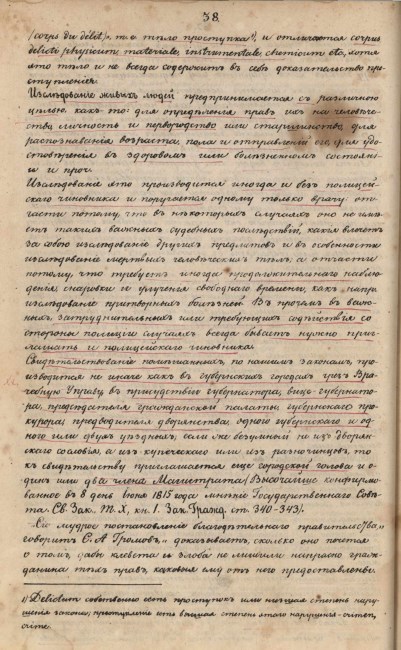 38.
(corps du délit)", т. е. тѣло проступка¹), и отличается corpus
delicti physicum, materiale, instrumentale, chemicum etc., хотя
это тѣло и не всегда содержитъ въ себѣ доказательство пре-
ступленія.
Изслѣдованіе живыхъ людей предпринимается съ различною
цѣлью какъ-то: для опредѣленія правъ ихъ на человѣче-
ство личность и первородство или старшинство, для
распознаванія возраста, пола и отправленій его, для удо-
стовѣренія въ здоровомъ или болѣзненномъ состоянi-
и и проч.
Изслѣдованіе это производится иногда и безъ полицей-
скаго чиновника и поручается одному только врачу от-
части потому, что въ нѣкоторыхъ случаяхъ оно не имѣ-
етъ такихъ важныхъ судебныхъ послѣдствій, какія влечетъ
за собою изслѣдованіе другихъ предметовъ и въ особенности
изслѣдованіе мертвыхъ человѣческихъ тѣлъ, а отчасти
потому, что требуетъ иногда продолжительнаго наблю-
денія сноровки и улученія свободнаго времени, какъ напр.
изслѣдованіе притворныхъ болѣзней. Въ прочемъ въ важ-
ныхъ, затруднительныхъ или требующихъ содѣйствія со
стороны полиціи случаяхъ всегда бываетъ нужно приг-
лашать и полицейскаго чиновника.
Свидѣтельствованіе помѣшанныхъ, по нашимъ законамъ, про-
изводится не иначе какъ въ губернскихъ городахъ чрезъ Вра-
чебную Управу, въ присутствіи губернатора, вице-губернато-
ра, предсѣдателя гражданской палаты, губернскаго про-
курора, предводителя дворянства: одного губернскаго и од-
ного или двухъ уѣздныхъ; если же безумный не изъ дворян-
скаго сословія, а изъ купеческаго или изъ разночинцевъ, то
къ свидѣтельству приглашается еще городской голова и о-
динъ или два члена Магистрата (Высочайше конфирмо-
ванное въ 8 день Іюня 1815 года мнѣніе Государственнаго Совѣ-
та Св. Зак. Т. X, кн. I. Зак. Гражд. ст. 340-343).
„Сіе мудрое постановленіе благодѣтельнаго правительства"
говоритъ С. А. Громовъ, „доказываетъ, сколько оно печется
о томъ, дабы клевета и злоба не лишили напрасно граж-
данина тѣхъ правъ, каковыя ему отъ него предоставлены.
1) Delictum собственно есть проступокъ или низшая степень нару-
шенія закона; преступленіе есть высшая степень этого нарушенія - crimen,
crime.